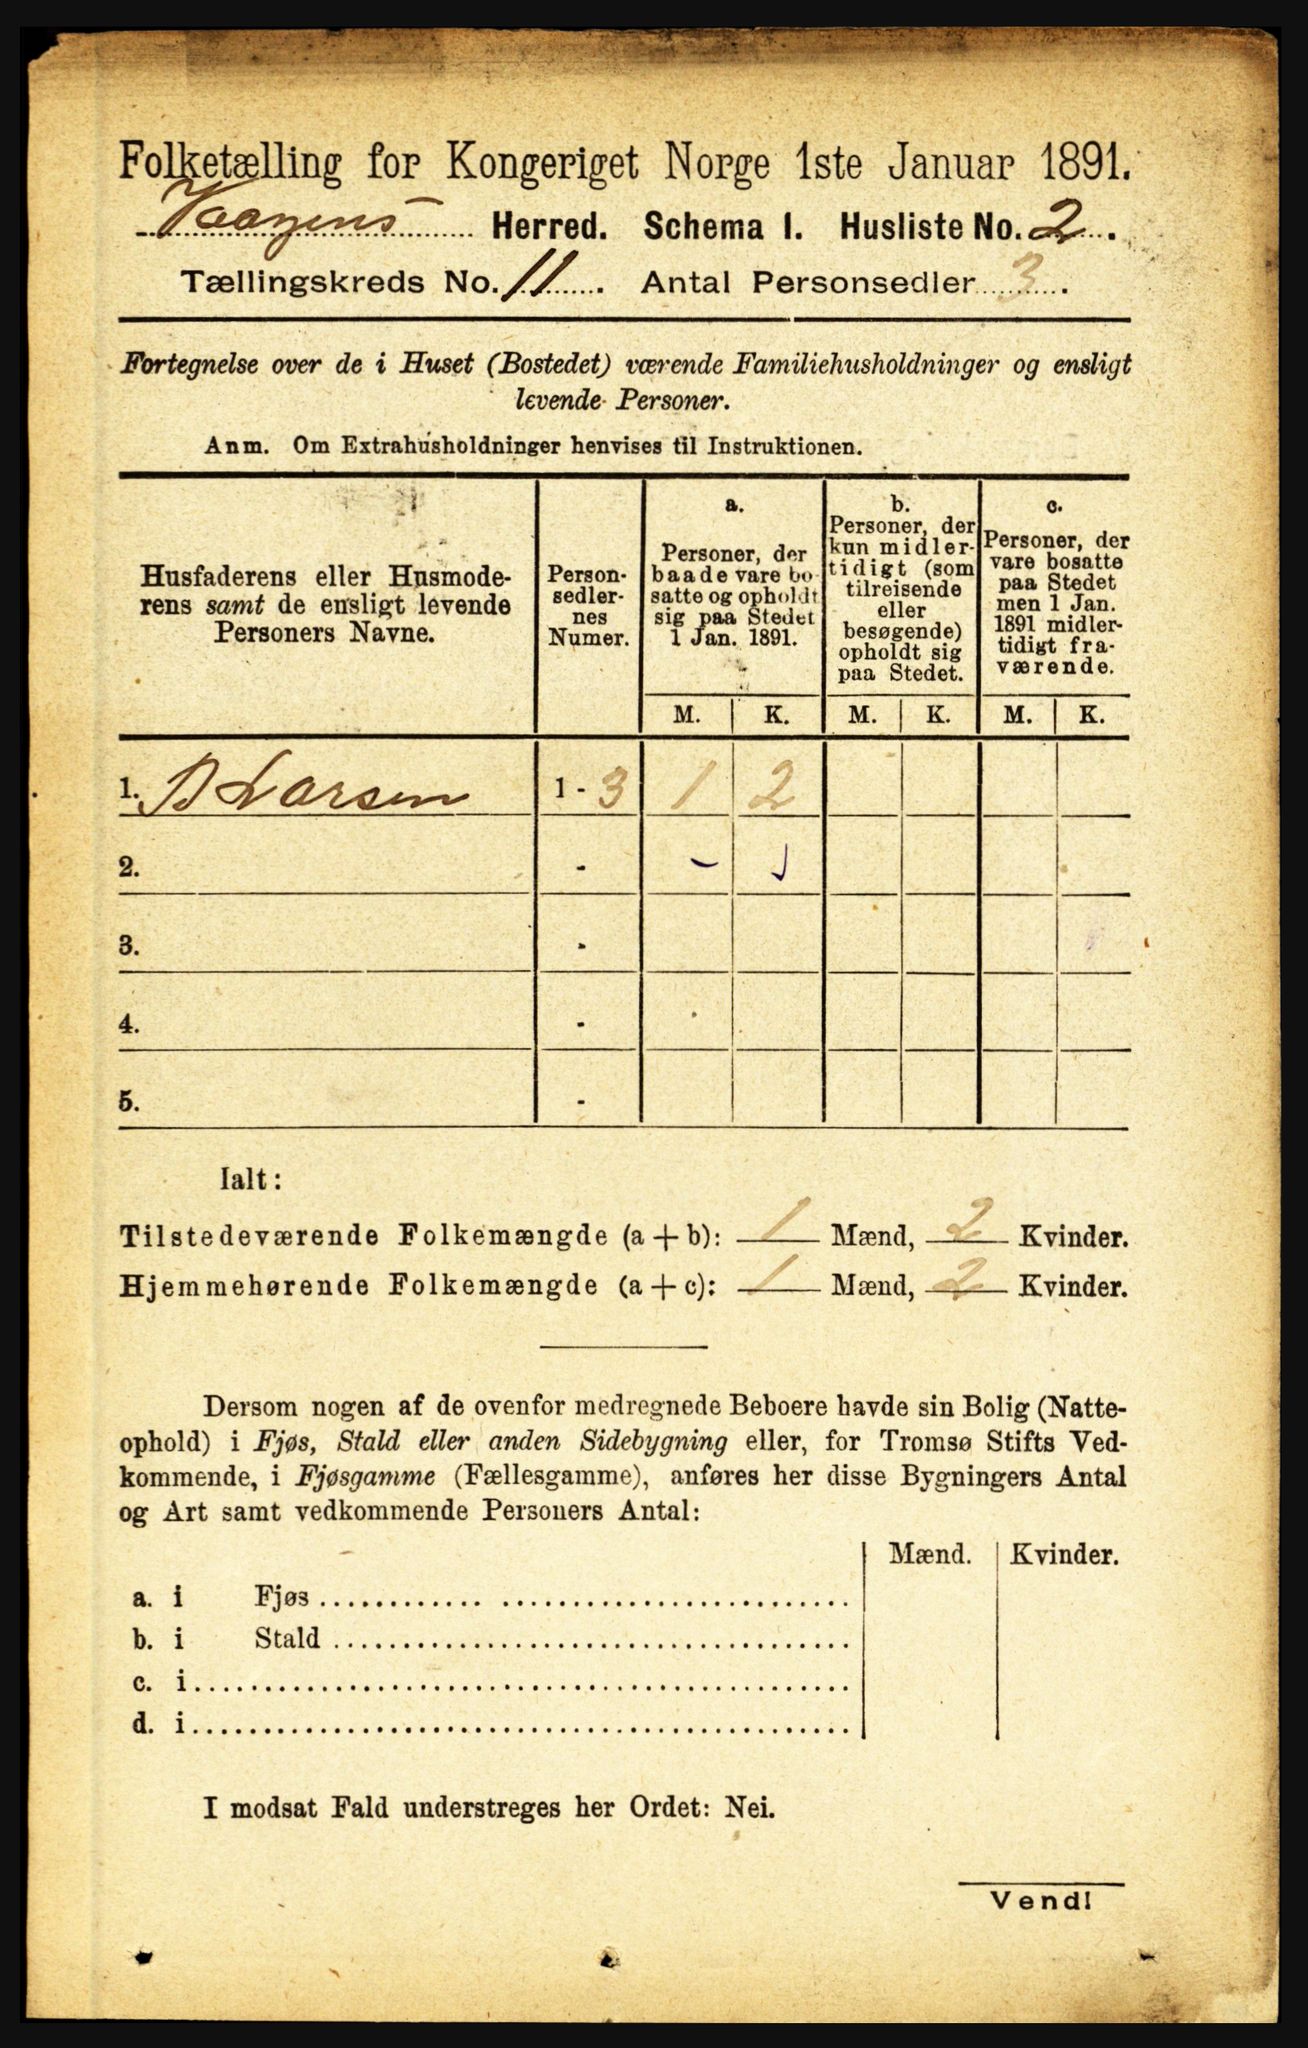 Folketælling for Kongeriget Norge 1ste Januar 1891.
Vaagens Herred. Schema I. Husliste No. 2.
Tællingskreds No. 11. Antal Personsedler 3.
Fortegnelse over de i Huset (Bostedet) værende Familiehusholdninger og ensligt
levende Personer.
Anm. Om Extrahusholdninger henvises til Instruktionen.
Husfaderens eller Husmode-
rens samt de ensligt levende
Personers Navne.
Person-
sedler-
nes
Numer.
a.
Personer, der
baade vare bo-
satte og opholdt
sig paa Stedet
1 Jan. 1891.
b.
Personer, der
kun midler-
tidigt (som
tilreisende
eller
besøgende)
opholdt sig
paa Stedet.
c.
Personer, der
vare bosatte
paa Stedet
men 1 Jan.
1891 midler-
tidigt fra-
værende.
M. K. M. K. M. K.
1. B Larsen 1 - 3 1 2
2. -
3. -
4. -
5. -
Ialt:
Tilstedeværende Folkemængde (a + b): 1 Mænd, 2 Kvinder.
Hjemmehørende Folkemængde (a + c): 1 Mænd, 2 Kvinder.
Dersom nogen af de ovenfor medregnede Beboere havde sin Bolig (Natte-
ophold) i Fjøs, Stald eller anden Sidebygning eller, for Tromsø Stifts Ved-
kommende, i Fjøsgamme (Fællesgamme), anføres her disse Bygningers Antal
og Art samt vedkommende Personers Antal:
Mænd. Kvinder.
a. i Fjøs
b. i Stald
c. i
d. i
I modsat Fald understreges her Ordet: Nei.
Vend!